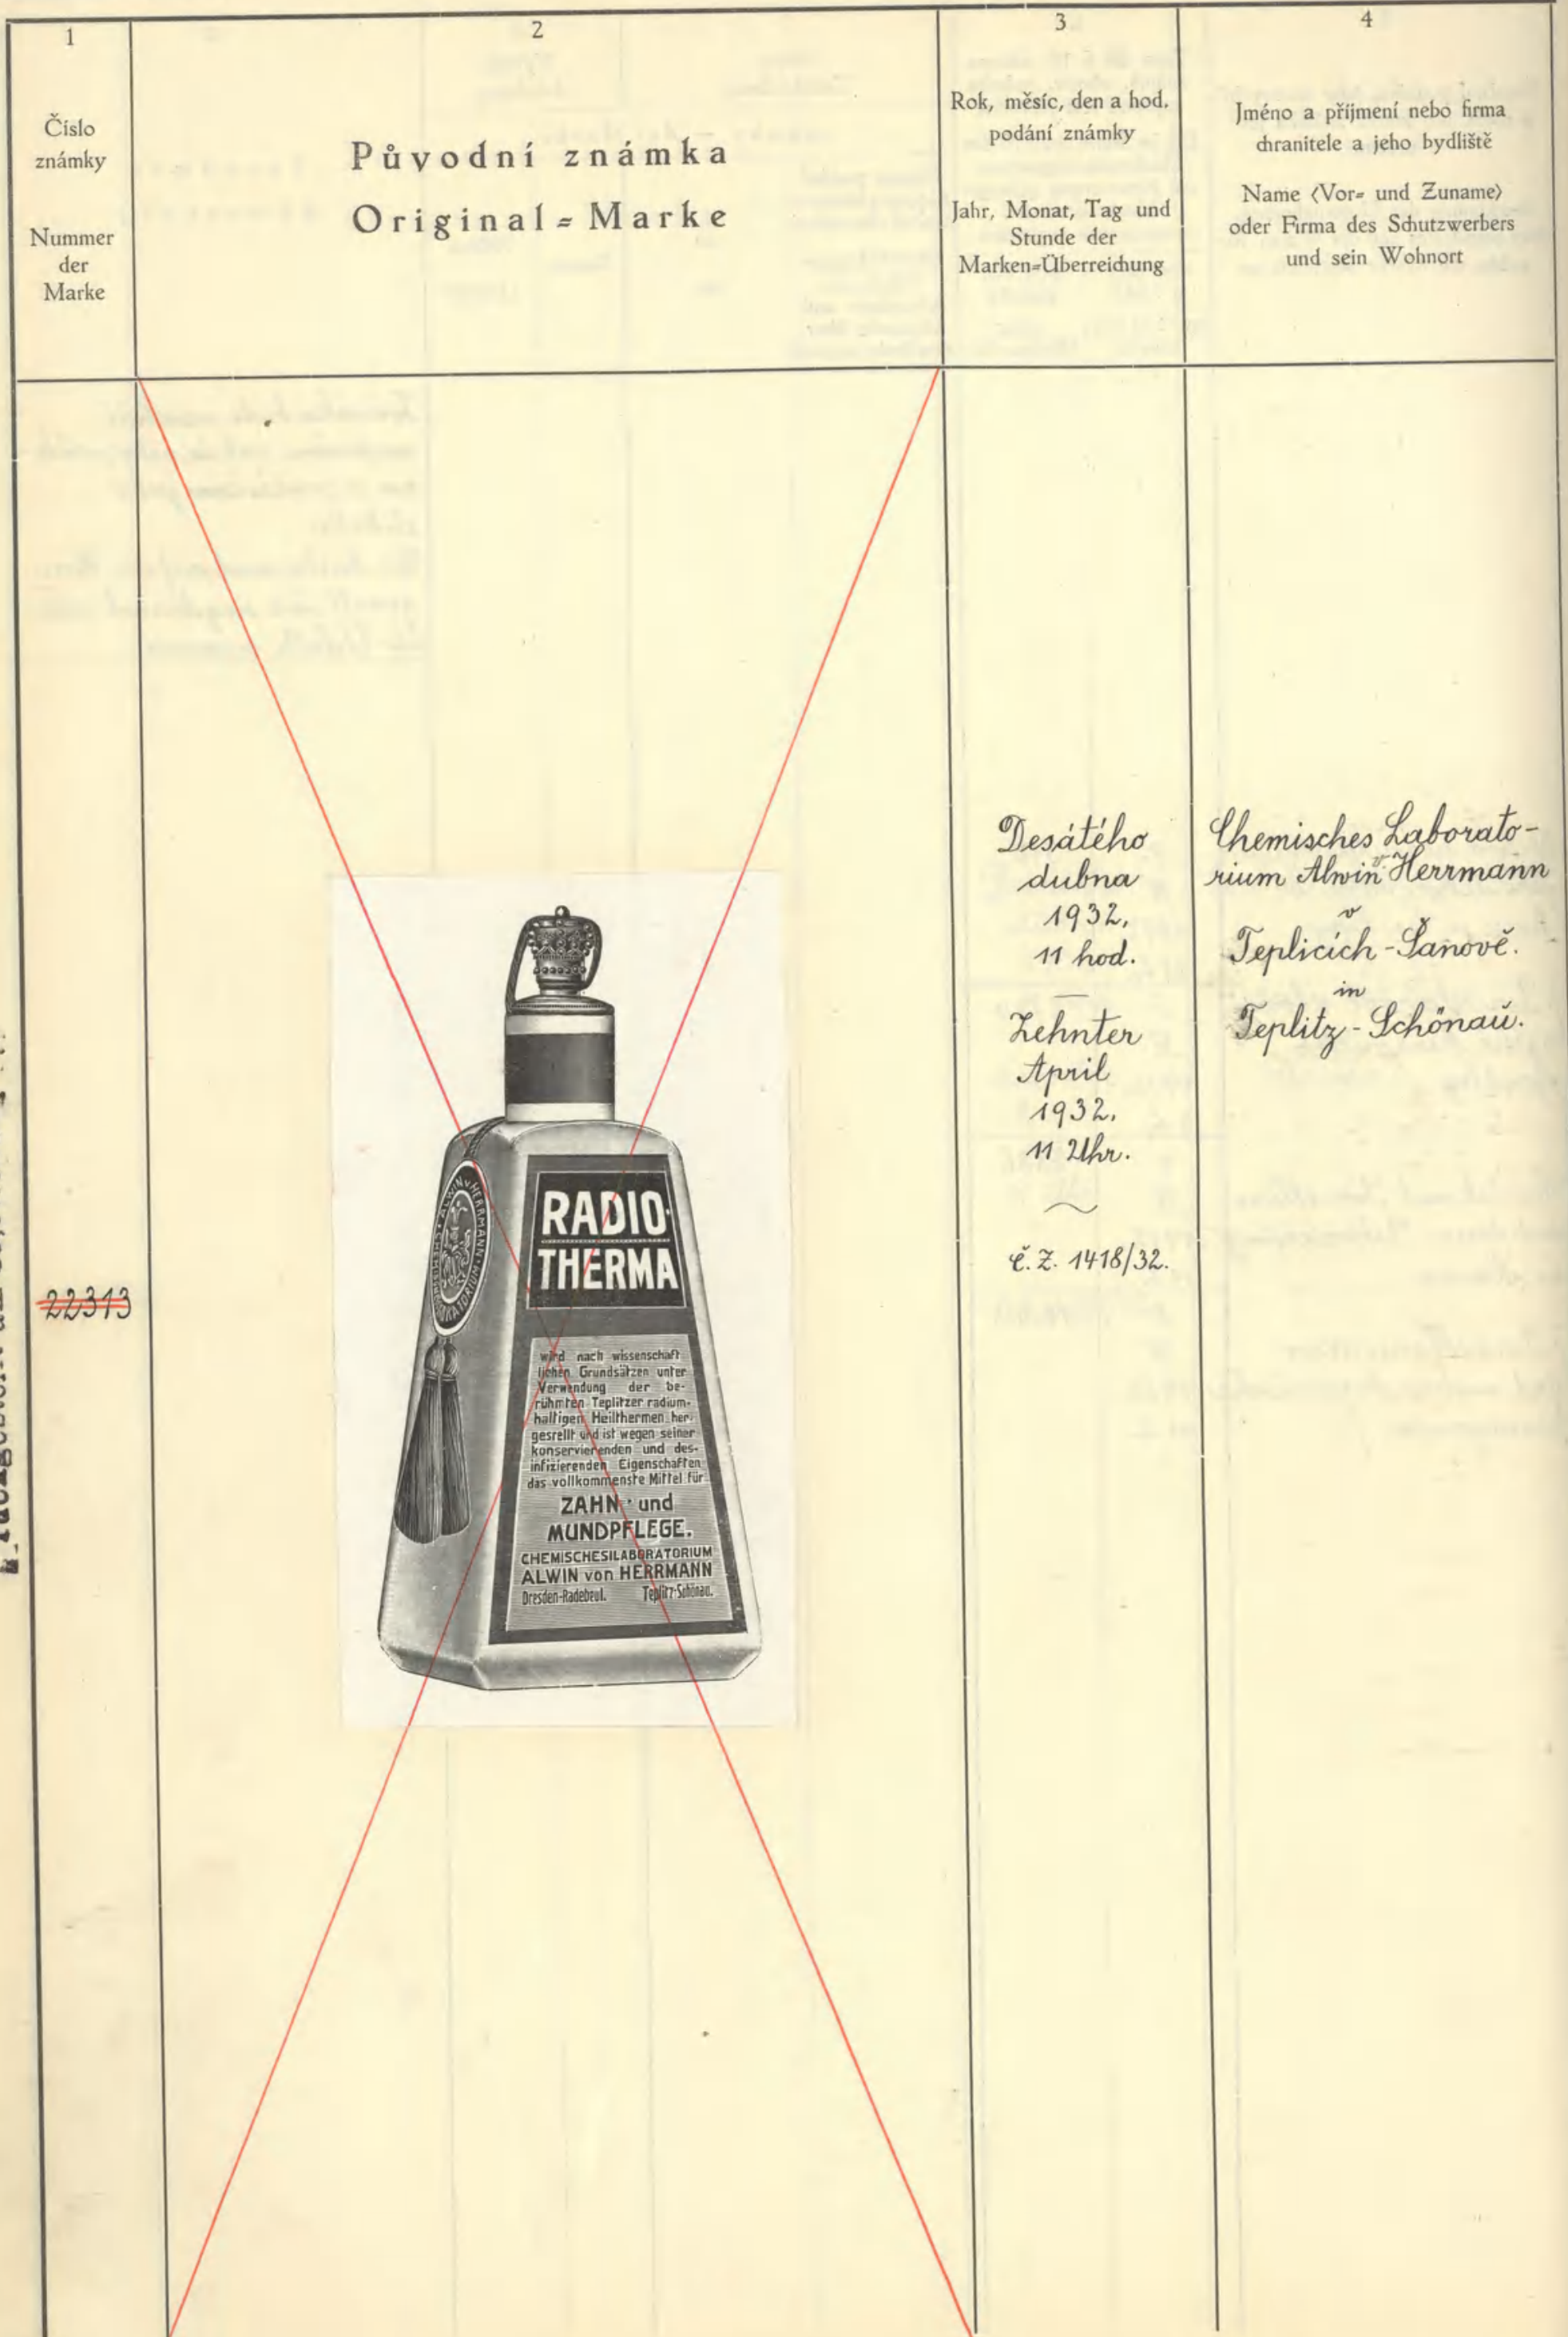 1
Číslo
známky
Nummer
der
Marke
2
Původní známka
Original=Marke
3
Rok, měsíc, den a hod.
podání známky
Jahr, Monat, Tag und
Stunde der
Marken=Überreichung
4
Jméno a příjmení nebo firma
chranitele a jeho bydliště
Name (Vor= und Zuname)
oder Firma des Schutzwerbers
und sein Wohnort
22313
RADIO-
THERMA
wird nach wissenschaft
lichen Grundsätzen unter
Verwendung der be-
rühmten Teplitzer radium-
haltigen Heilthermen her-
gesrellt und ist wegen seiner
konservierenden und des-
infizierenden Eigenschaften
das vollkommenste Mittel für
ZAHN- und
MUNDPFLEGE.
CHEMISCHESILABORATORIUM
ALWIN von HERRMANN
Dresden-Radebeul. Teplitz-Schönau.
ALWIN v. HERRMANN
Desátého
dubna
1932,
11 hod.
—
Zehnter
April
1932.
11 Uhr.
~
č. z. 1418/32.
Chemisches Laborato-
rium Alwin v. Herrmann
v
Teplicích-Šanově.
in
Teplitz-Schönau.